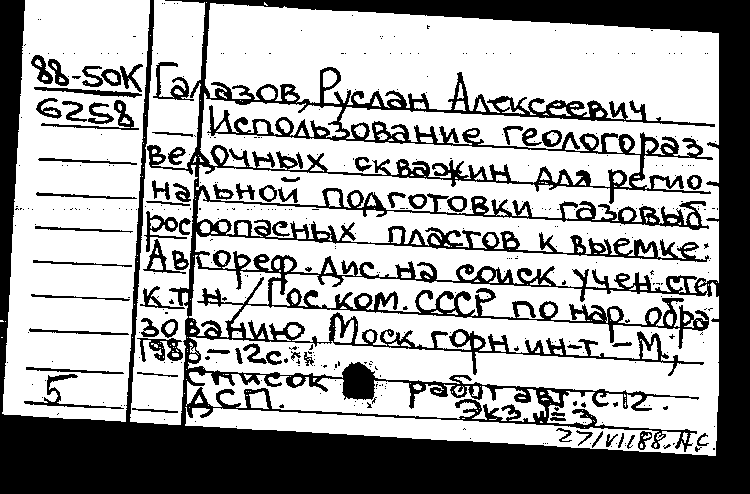 88-50К Галазов, Руслан Алексеевич.
6258 Использование геологораз-
ведочных скважин для регио-
нальной подготовки газовыб-
росоопасных пластов к выемке:
Автореф. дис. на соиск. учен. степ
к.т.н. / Гос. ком. СССР по нар. обра-
зованию, Моск. горн. ин-т. – М.,
1988. – 12 с.
5 Список работ авт.: с. 12.
ДСП. Экз. № 3.
27/VII88. АС.